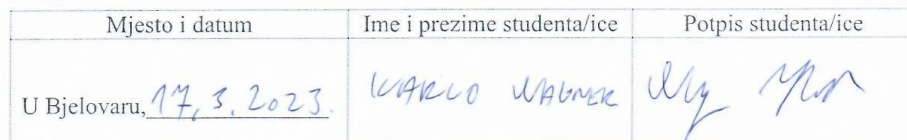 Mjesto i datum Ime i prezime studenta/ice Potpis studenta/ice
U Bjelovaru, 17, 3, 2023. KARLO WAGNER